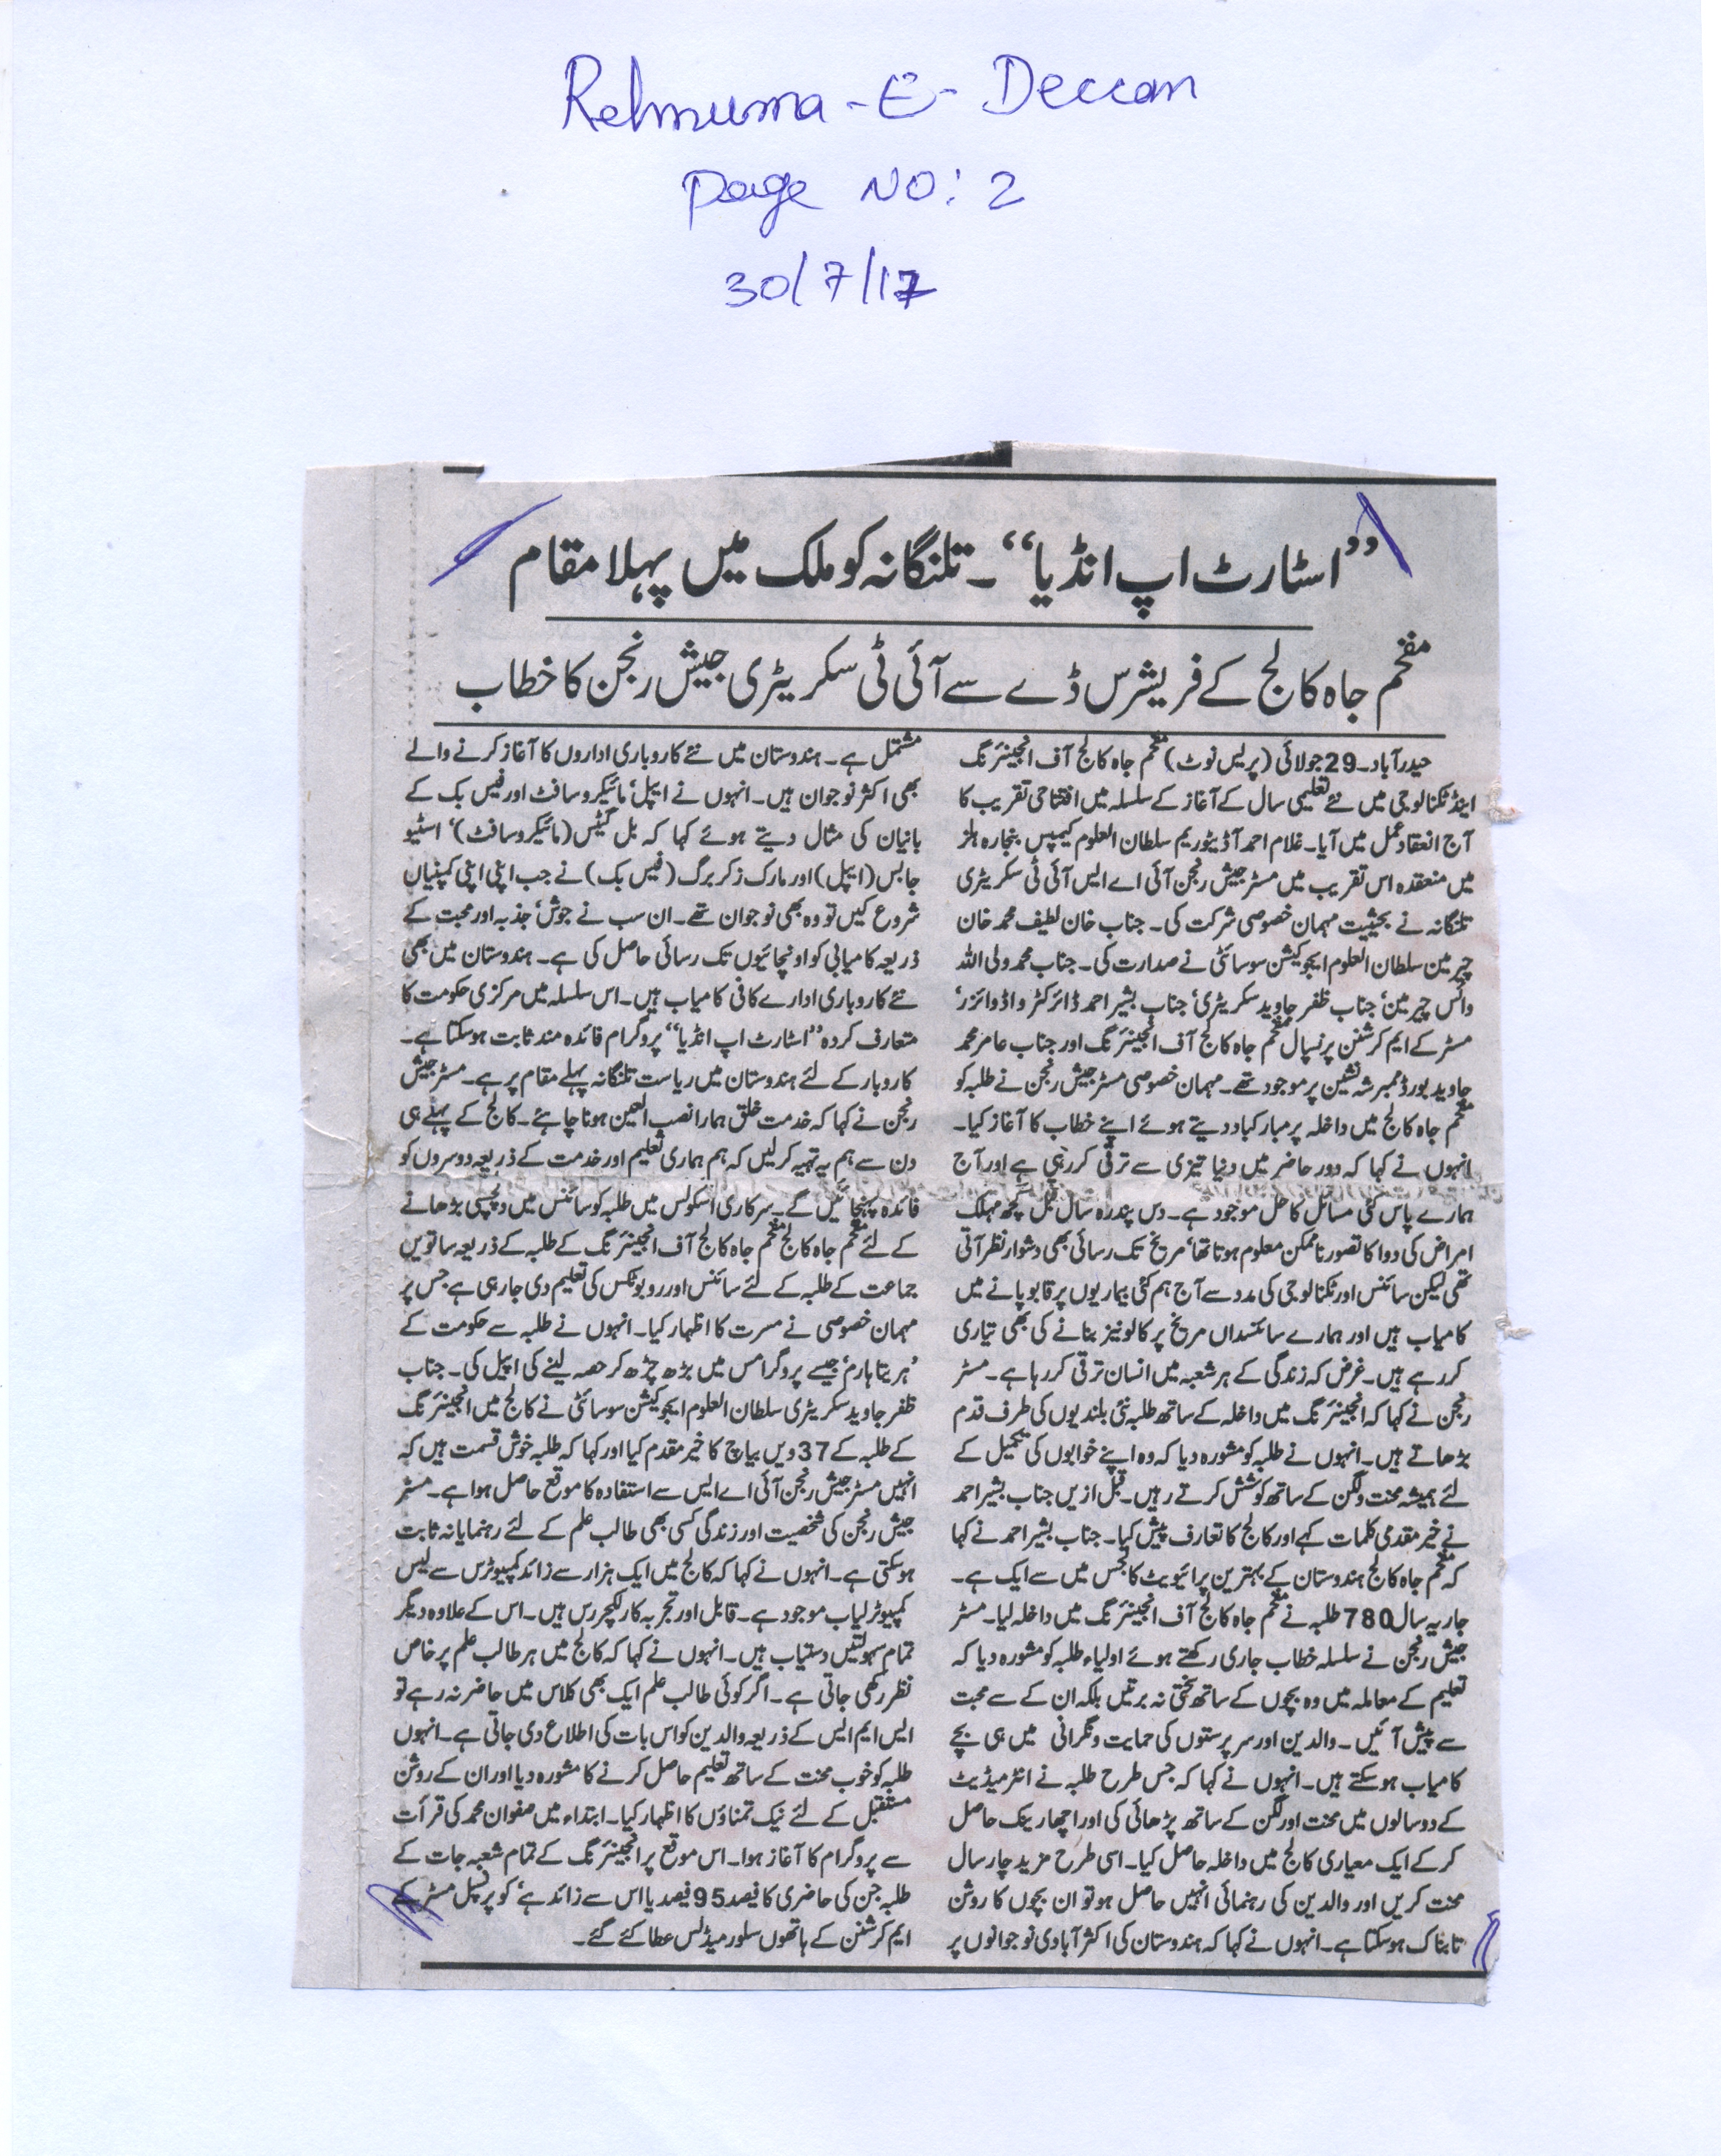 Rehnuma-E-Deccan
Page NO: 2
30/7/17
”اسٹارٹ اپ انڈیا“ ۔ تلنگانہ کو ملک میں پہلا مقام
مفخم جاہ کالج کے فریشرس ڈے سے آئی ٹی سکریٹری جیش رنجن کا خطاب
حیدرآباد۔29جولائی (پریس نوٹ) مفخم جاہ کالج آف انجینئرنگ
اینڈ ٹکنالوجی میں نئے تعلیمی سال کے آغاز کے سلسلہ میں افتتاحی تقریب کا
آج انعقاد عمل میں آیا۔ غلام احمد آڈیٹوریم سلطان العلوم کیمپس بنجارہ ہلز
میں منعقدہ اس تقریب میں مسٹر جیش رنجن آئی اے ایس آئی ٹی سکریٹری
تلنگانہ نے بحیثیت مہمان خصوصی شرکت کی۔ جناب خان لطیف محمد خان
چیرمین سلطان العلوم ایجوکیشن سوسائٹی نے صدارت کی۔ جناب محمد ولی اللہ
وائس چیرمین‘ جناب ظفر جاوید سکریٹری‘ جناب بشیر احمد ڈائرکٹر واڈوائزر‘
مسٹر کے ایم کرشنن پرنسپال مفخم جاہ کالج آف انجینئرنگ اور جناب عامر محمد
جاوید بورڈ ممبر شہ نشین پر موجود تھے۔ مہمان خصوصی مسٹر جیش رنجن نے طلبہ کو
مفخم جاہ کالج میں داخلہ پر مبارکباد دیتے ہوئے اپنے خطاب کا آغاز کیا۔
انہوں نے کہا کہ دور حاضر میں دنیا تیزی سے ترقی کررہی ہے اور آج
ہمارے پاس کئی مسائل کا حل موجود ہے۔ دس پندرہ سال قبل کچھ مہلک
امراض کی دوا کا تصور ناممکن معلوم ہوتا تھا‘ مریخ تک رسائی بھی دشوار نظر آتی
تھی لیکن سائنس اور ٹکنالوجی کی مدد سے آج ہم کئی بیماریوں پر قابو پانے میں
کامیاب ہیں اور ہمارے سائنسداں مریخ پر کالونیز بنانے کی بھی تیاری
کررہے ہیں۔ غرض کہ زندگی کے ہر شعبہ میں انسان ترقی کررہا ہے۔ مسٹر
رنجن نے کہا کہ انجینئرنگ میں داخلہ کے ساتھ طلبہ نئی بلندیوں کی طرف قدم
بڑھاتے ہیں۔ انہوں نے طلبہ کو مشورہ دیا کہ وہ اپنے خوابوں کی تکمیل کے
لئے ہمیشہ محنت ولگن کے ساتھ کوشش کرتے رہیں۔ قبل ازیں جناب بشیر احمد
نے خیر مقدمی کلمات کہے اور کالج کا تعارف پیش کیا۔ جناب بشیر احمد نے کہا
کہ مفخم جاہ کالج ہندوستان کے بہترین پرائیویٹ کالجس میں سے ایک ہے۔
جاریہ سال 780 طلبہ نے مفخم جاہ کالج آف انجینئرنگ میں داخلہ لیا۔ مسٹر
جیش رنجن نے سلسلہ خطاب جاری رکھتے ہوئے اولیاء طلبہ کو مشورہ دیا کہ
تعلیم کے معاملہ میں وہ بچوں کے ساتھ سختی نہ برتیں بلکہ ان کے سے محبت
سے پیش آئیں ۔ والدین اور سرپرستوں کی حمایت ونگرانی میں ہی بچے
کامیاب ہوسکتے ہیں۔ انہوں نے کہا کہ جس طرح طلبہ نے انٹرمیڈیٹ
کے دوسالوں میں محنت اور لگن کے ساتھ پڑھائی کی اور اچھا رینک حاصل
کرکے ایک معیاری کالج میں داخلہ حاصل کیا۔ اسی طرح مزید چار سال
محنت کریں اور والدین کی رہنمائی انہیں حاصل ہو تو ان بچوں کا روشن
تابناک ہوسکتا ہے۔ انہوں نے کہا کہ ہندوستان کی اکثر آبادی نوجوانوں پر
مشتمل ہے۔ ہندوستان میں نئے کاروباری اداروں کا آغاز کرنے والے
بھی اکثر نوجوان ہیں۔ انہوں نے ایپل‘ مائیکروسافٹ اور فیس بک کے
بانیان کی مثال دیتے ہوئے کہا کہ بل گیٹس (مائیکروسافٹ)‘ اسٹیو
جابس (ایپل) اور مارک زکربرگ (فیس بک) نے جب اپنی اپنی کمپنیاں
شروع کیں تو وہ بھی نوجوان تھے۔ ان سب نے جوش‘ جذبہ اور محبت کے
ذریعہ کامیابی کو اونچائیوں تک رسائی حاصل کی ہے۔ ہندوستان میں بھی
نئے کاروباری ادارے کافی کامیاب ہیں۔ اس سلسلہ میں مرکزی حکومت کا
متعارف کردہ ”اسٹارٹ اپ انڈیا“ پروگرام فائدہ مند ثابت ہوسکتا ہے۔
کاروبار کے لئے ہندوستان میں ریاست تلنگانہ پہلے مقام پر ہے۔ مسٹر جیش
رنجن نے کہا کہ خدمت خلق ہمارا نصب العین ہونا چاہئے۔ کالج کے پہلے ہی
دن سے ہم یہ تہیہ کرلیں کہ ہم ہماری تعلیم اور خدمت کے ذریعہ دوسروں کو
فائدہ پہنچائیں گے۔ سرکاری اسکولس میں طلبہ کو سائنس میں دلچسپی بڑھانے
کے لئے مفخم جاہ کالج مفخم جاہ کالج آف انجینئرنگ کے طلبہ کے ذریعہ ساتویں
جماعت کے طلبہ کے لئے سائنس اور روبوٹکس کی تعلیم دی جارہی ہے جس پر
مہمان خصوصی نے مسرت کا اظہار کیا۔ انہوں نے طلبہ سے حکومت کے
’ہریتا ہارم‘ جیسے پروگرامس میں بڑھ چڑھ کر حصہ لینے کی اپیل کی۔ جناب
ظفر جاوید سکریٹری سلطان العلوم ایجوکیشن سوسائٹی نے کالج میں انجینئرنگ
کے طلبہ کے 37 ویں بیاچ کا خیر مقدم کیا اور کہا کہ طلبہ خوش قسمت ہیں کہ
انہیں مسٹر جیش رنجن آئی اے ایس سے استفادہ کا موقع حاصل ہوا ہے۔ مسٹر
جیش رنجن کی شخصیت اور زندگی کسی بھی طالب علم کے لئے رہنمایانہ ثابت
ہوسکتی ہے۔ انہوں نے کہا کہ کالج میں ایک ہزار سے زائد کمپیوٹرس سے لیس
کمپیوٹر لیاب موجود ہے۔ قابل اور تجربہ کار لکچررس ہیں۔ اس کے علاوہ دیگر
تمام سہولتیں دستیاب ہیں۔ انہوں نے کہا کہ کالج میں ہر طالب علم پر خاص
نظر رکھی جاتی ہے۔ اگر کوئی طالب علم ایک بھی کلاس میں حاضر نہ رہے تو
ایس ایم ایس کے ذریعہ والدین کو اس بات کی اطلاع دی جاتی ہے۔ انہوں
طلبہ کو خوب محنت کے ساتھ تعلیم حاصل کرنے کا مشورہ دیا اور ان کے روشن
مستقبل کے لئے نیک تمناؤں کا اظہار کیا۔ ابتداء میں صفوان محمد کی قرأت
سے پروگرام کا آغاز ہوا۔ اس موقع پر انجینئرنگ کے تمام شعبہ جات کے
طلبہ جن کی حاضری کا فیصد 95 فیصد یا اس سے زائد ہے‘ کو پرنسپل مسٹر کے
ایم کرشنن کے ہاتھوں سلور میڈلس عطا کئے گئے۔